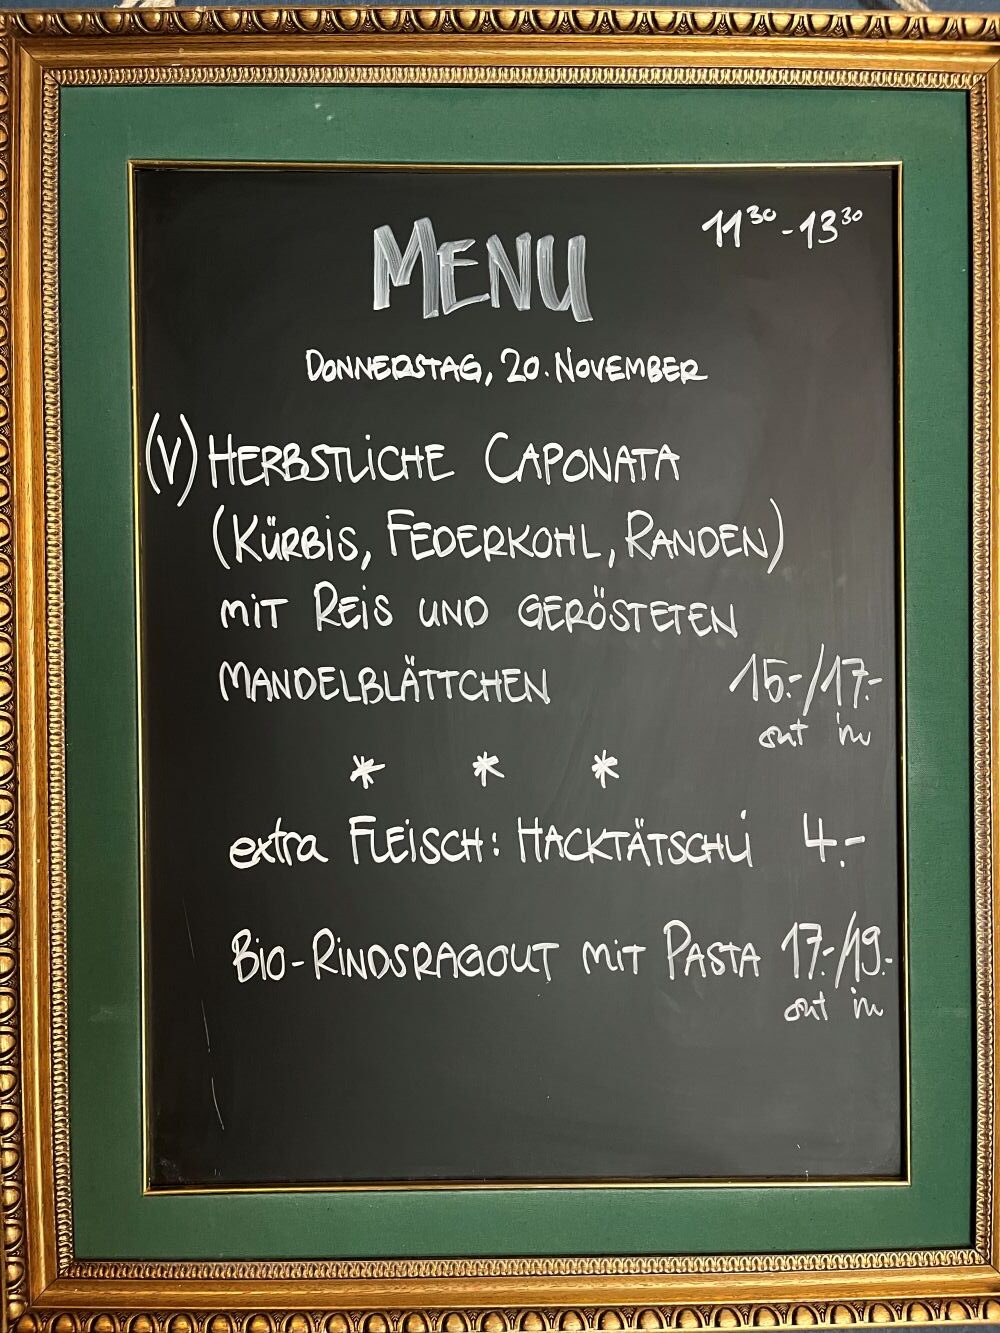 11³⁰ - 13³⁰
MENU
DONNERSTAG, 20. NOVEMBER
(V) HERBSTLICHE CAPONATA
(KÜRBIS, FEDERKOHL, RANDEN)
MIT REIS UND GERÖSTETEN
MANDELBLÄTTCHEN 15.-/17.-
out in
* * *
extra FLEISCH: HACKTÄTSCHLI 4.-
BIO-RINDSRAGOUT MIT PASTA 17.-/19.-
out in